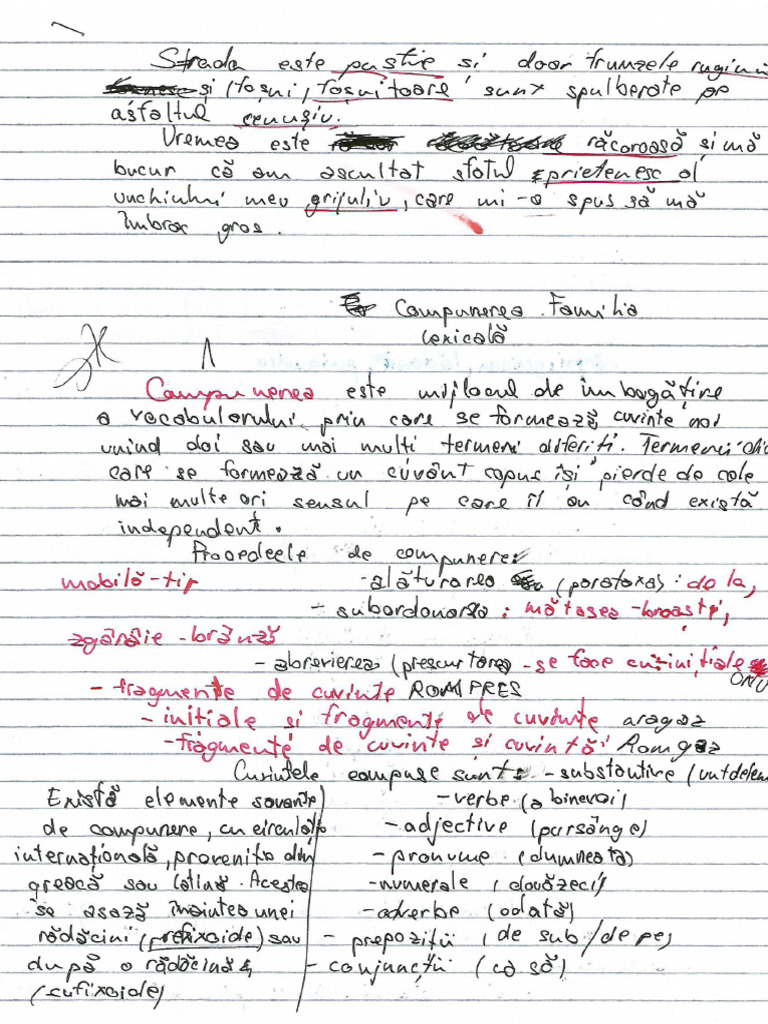 Strada este pustie si doar frunzele ruginii
și foșni, foșnitoare sunt spulberate pe
asfaltul cenușiu.
Vremea este răcoroasă și mă
bucur că am ascultat sfatul prietenesc al
unchiului meu grijuliu, care mi-a spus să mă
îmbrac gros.
Compunerea. Familia
lexicală
Compunerea este mijlocul de îmbogățire
a vocabularului prin care se formează cuvinte noi
unind doi sau mai multi termeni diferiti. Termenii din
care se formează un cuvânt copus își pierde de cele
mai multe ori sensul pe care îl au când există
independent.
Procedeele de compunere:
mobilă-tip -alăturarea (parataxa): de la,
- subordonarea: mătasea-broaștii,
zgârâie-brânză
- abrevierea (prescurtarea -se face cu inițiale
ONU
- fragmente de cuvinte ROMPRES
- initiale si fragmente de cuvinte aragaz
- fragmente de cuvinte si cuvintă: Romgaz
Cuvintele compuse sunt: - substantive (untdelemn
Există elemente savante
de compunere, cu circulație
internațională, provenite din
greacă sau latină. Acestea
se asază înaintea unei
rădăcini (prefixoide) sau
după o rădăcină,
(sufixoide)
-verbe (a binevoi)
-adjective (pursânge)
- pronume (dumneata)
-numerale (douăzeci)
-adverbe (odată)
- prepoziții (de sub/de pe,
- conjuncții (ca să)